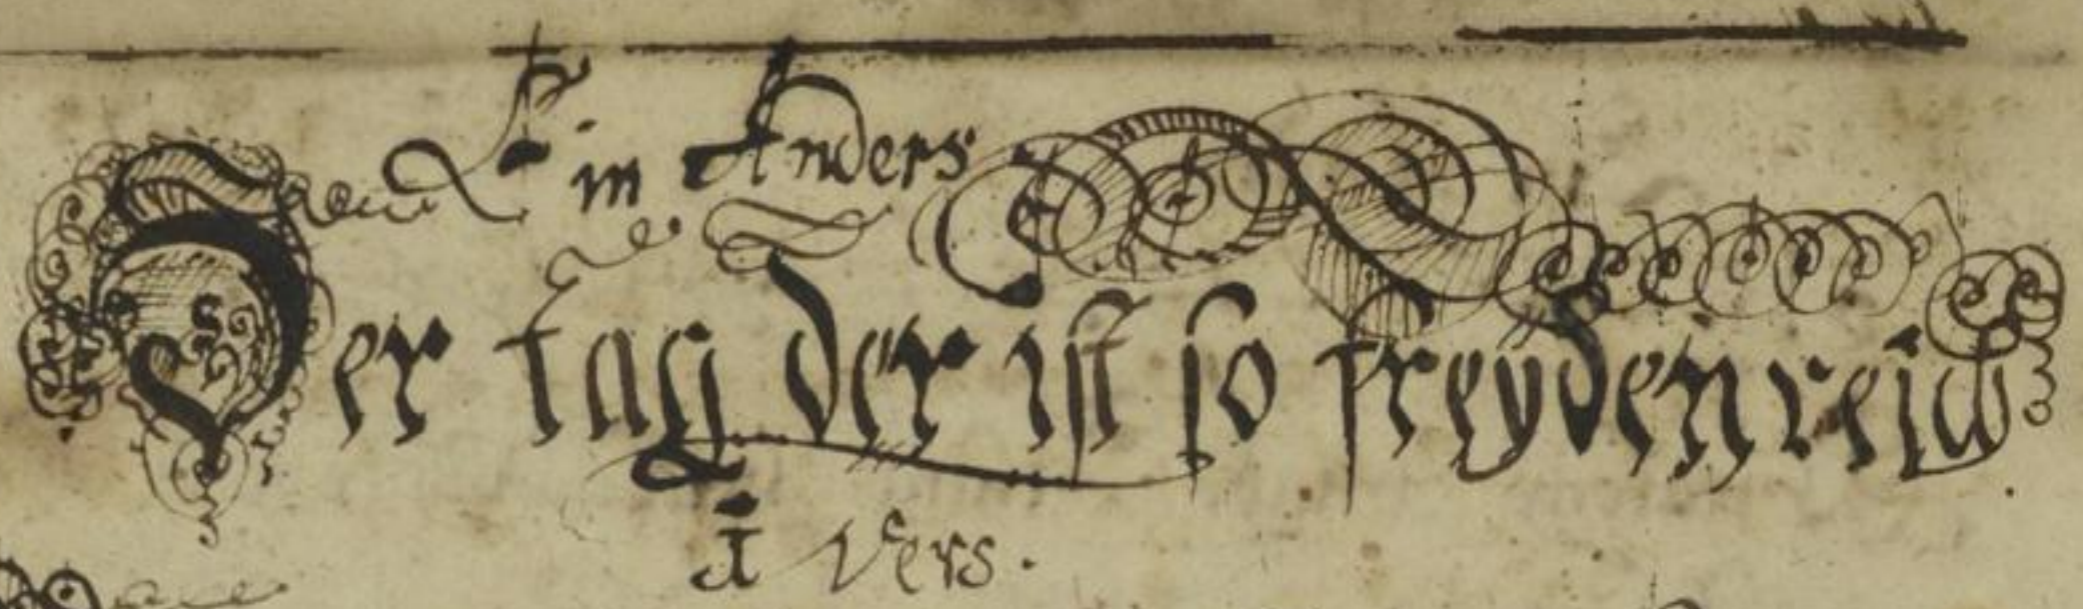 Ein Anders
Der tag der ist so freydenreich
I Vers.